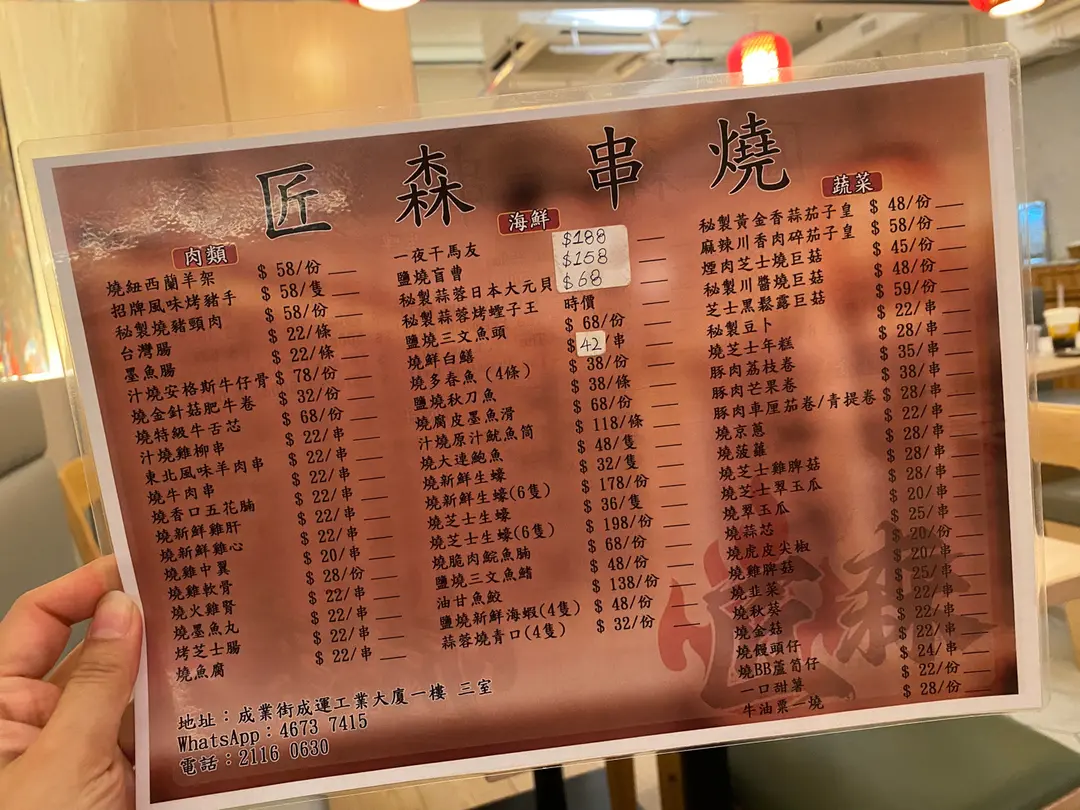 匠森串燒
肉類
燒紐西蘭羊架 $ 58/份
招牌風味烤豬手 $ 58/隻
秘製燒豬頸肉 $ 58/份
台灣腸 $ 22/條
墨魚腸 $ 22/條
汁燒安格斯牛仔骨 $ 78/份
燒金針菇肥牛卷 $ 32/份
燒特級牛舌芯 $ 68/份
汁燒雞柳串 $ 22/串
東北風味羊肉串 $ 22/串
燒牛肉串 $ 22/串
燒香口五花腩 $ 22/串
燒新鮮雞肝 $ 22/串
燒新鮮雞心 $ 22/串
燒雞中翼 $ 20/串
燒雞軟骨 $ 28/份
燒火雞腎 $ 22/串
燒墨魚丸 $ 22/串
烤芝士腸 $ 22/串
燒魚腐 $ 22/串
海鮮
一夜干馬友 $188
鹽燒盲曹 $158
秘製蒜蓉日本大元貝 $68
秘製蒜蓉烤蟶子王 時價
鹽燒三文魚頭 $ 68/份
燒鮮白鱔 $ 42/串
燒多春魚(4條) $ 38/份
鹽燒秋刀魚 $ 38/條
燒腐皮墨魚滑 $ 68/份
汁燒原汁魷魚筒 $ 118/條
燒大連鮑魚 $ 48/隻
燒新鮮生蠔 $ 32/隻
燒新鮮生蠔(6隻) $ 178/份
燒芝士生蠔 $ 36/隻
燒芝士生蠔(6隻) $ 198/份
燒脆肉鯇魚腩 $ 68/份
鹽燒三文魚鰭 $ 48/份
油甘魚鮫 $ 138/份
鹽燒新鮮海蝦(4隻) $ 48/份
蒜蓉燒青口(4隻) $ 32/份
蔬菜
秘製黃金香蒜茄子皇 $ 48/份
麻辣川香肉碎茄子皇 $ 58/份
煙肉芝士燒巨菇 $ 45/份
秘製川醬燒巨菇 $ 48/份
芝士黑鬆露巨菇 $ 59/份
秘製豆卜 $ 22/串
燒芝士年糕 $ 28/串
豚肉荔枝卷 $ 35/串
豚肉芒果卷 $ 38/串
豚肉車厘茄卷/青提卷 $ 28/串
燒京蔥 $ 22/串
燒菠蘿 $ 28/串
燒芝士雞脾菇 $ 28/串
燒芝士翠玉瓜 $ 28/串
燒翠玉瓜 $ 20/串
燒蒜芯 $ 25/串
燒虎皮尖椒 $ 20/份
燒雞脾菇 $ 20/串
燒韭菜 $ 25/串
燒秋葵 $ 22/串
燒金菇 $ 22/串
燒饅頭仔 $ 22/串
燒BB蘆筍仔 $ 24/串
一口甜薯 $ 22/份
牛油粟一燒 $ 28/份
地址：成業街成運工業大廈一樓 三室
WhatsApp：4673 7415
電話：2116 0630